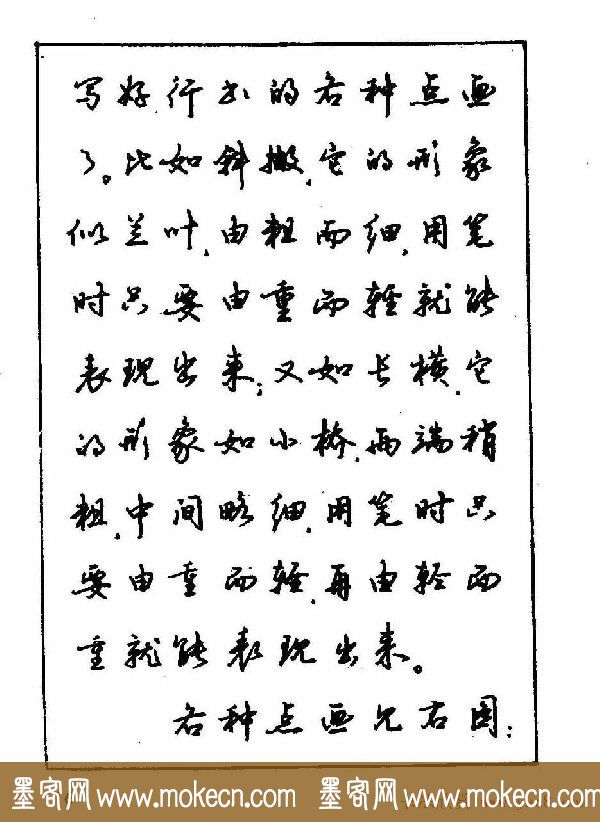 写好行书的各种点画
了。比如斜撇，它的形象
似兰叶，由粗而细，用笔
时只要由重而轻就能
表现出来；又如长横，它
的形象如小桥，两端稍
粗，中间略细，用笔时只
要由重而轻，再由轻而
重就能表现出来。
各种点画见右图：
墨客网 www.mokecn.com 墨客网 www.mokecn.com